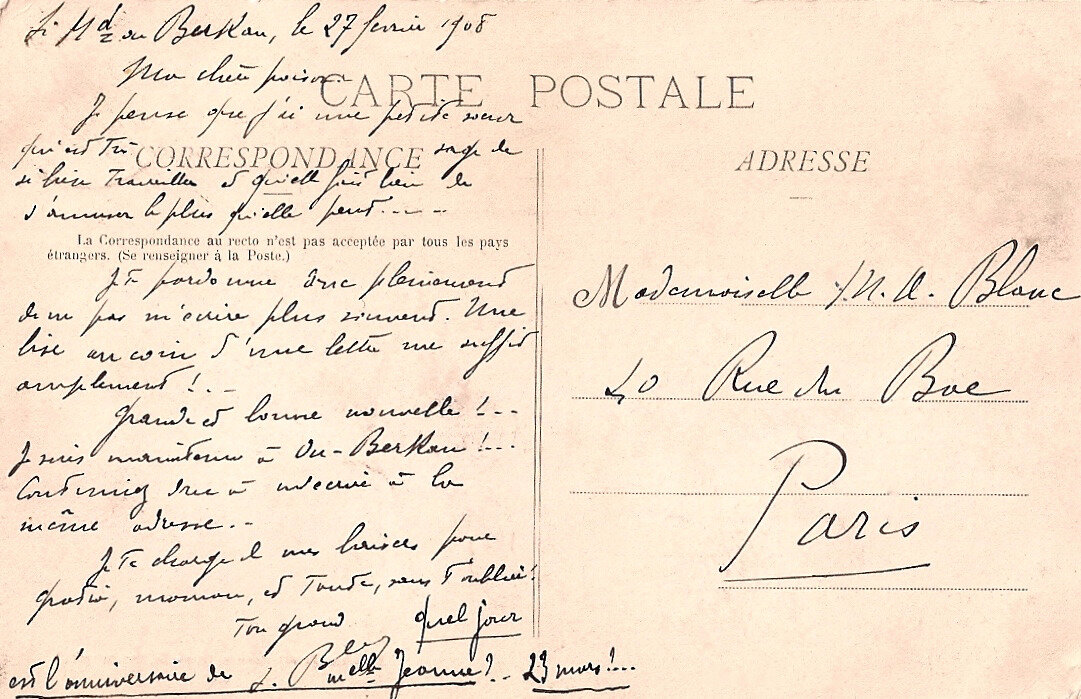 Si Md ou Berkan, le 27 fevrier 1908
Ma chère
CARTE POSTALE
Je pense que j'ai une petite sœur
qui est très sage de
CORRESPONDANCE
si bien travailler et qu'elle fait bien de
s'amuser le plus qu'elle peut....
La Correspondance au recto n'est pas acceptée par tous les pays
étrangers. (Se renseigner à la Poste.)
Je te pardonne donc pleinement
de ne pas m'écrire plus souvent. Une
bise au coin d'une lettre me suffit
amplement !..
Grande et bonne nouvelle !...
Je suis maintenu à Ou-Berkan !...
Continuez donc à m'écrire à la
même adresse...
Je te charge de mes baisers pour
maman, et Tante, sans t'oublier !
Ton grand
quel jour
est l'anniversaire de melle Jeanne ? 23 mars !...
ADRESSE
Mademoiselle M. A. Blanc
40 Rue du Bac
Paris